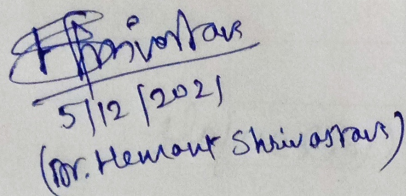 Shrivastava
5/12/2021
(Dr. Hemant Shrivastava)